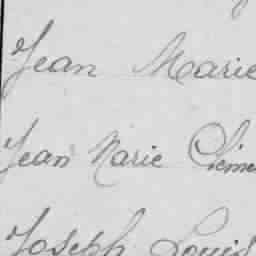 Jean Marie
Jean Marie Cléme
Joseph Louis